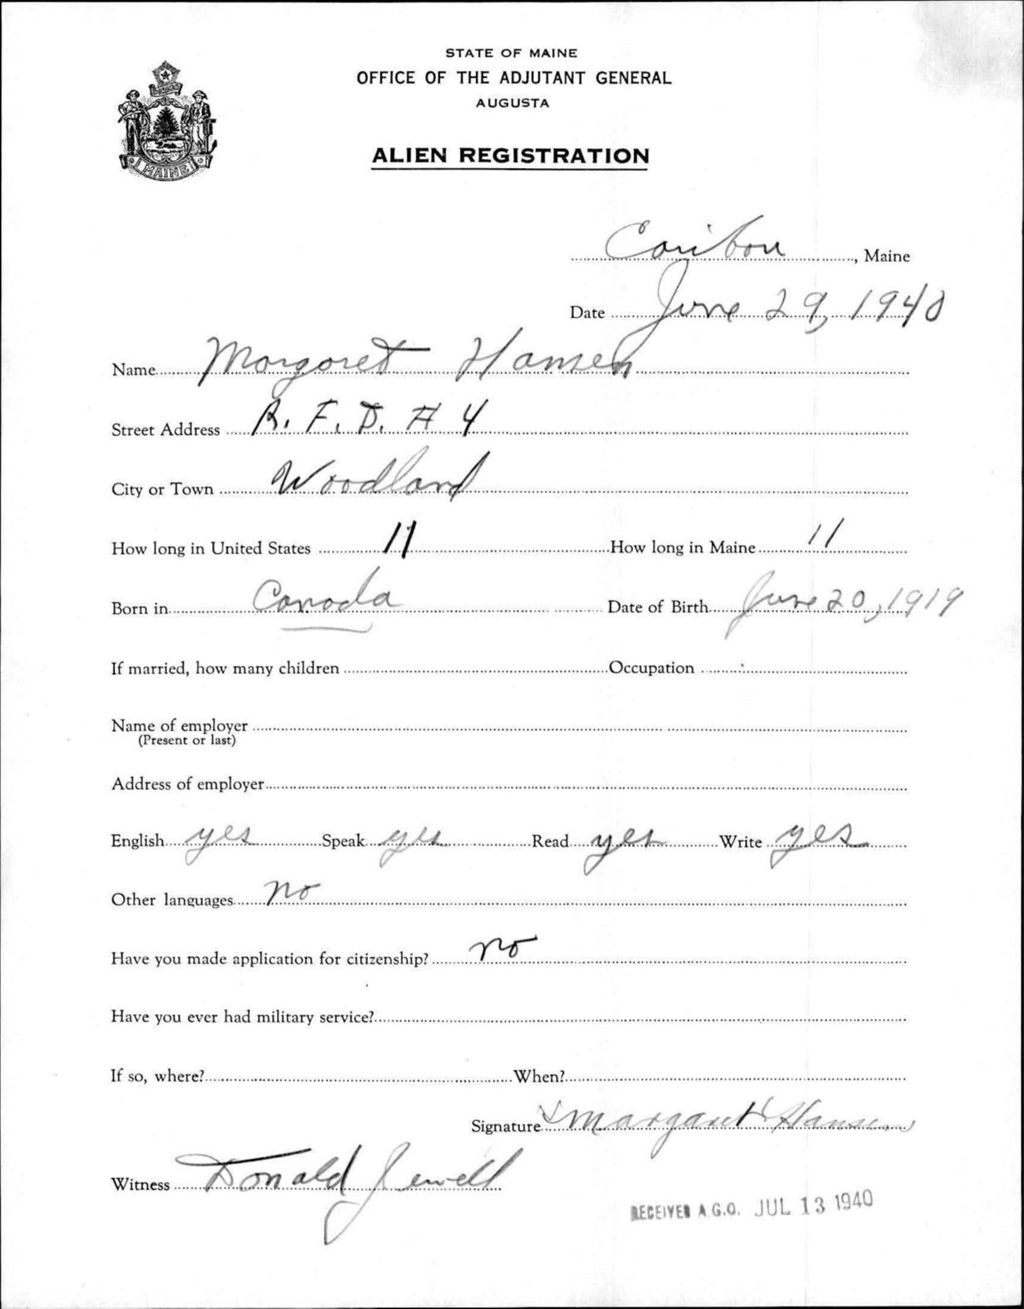 STATE OF MAINE
OFFICE OF THE ADJUTANT GENERAL
AUGUSTA
ALIEN REGISTRATION
MAINE
Caribou, Maine
Date June 29, 1940
Name Margaret Hansen
Street Address R. F. D. # 4
City or Town Woodland
How long in United States 11 How long in Maine 11
Born in Canada Date of Birth June 20, 1919
If married, how many children Occupation
Name of employer
(Present or last)
Address of employer
English yes Speak yes Read yes Write yes
Other languages no
Have you made application for citizenship? no
Have you ever had military service?
If so, where? When?
Signature Margaret Hansen
Witness Donald Jewell
RECEIVED A.G.O. JUL 13 1940